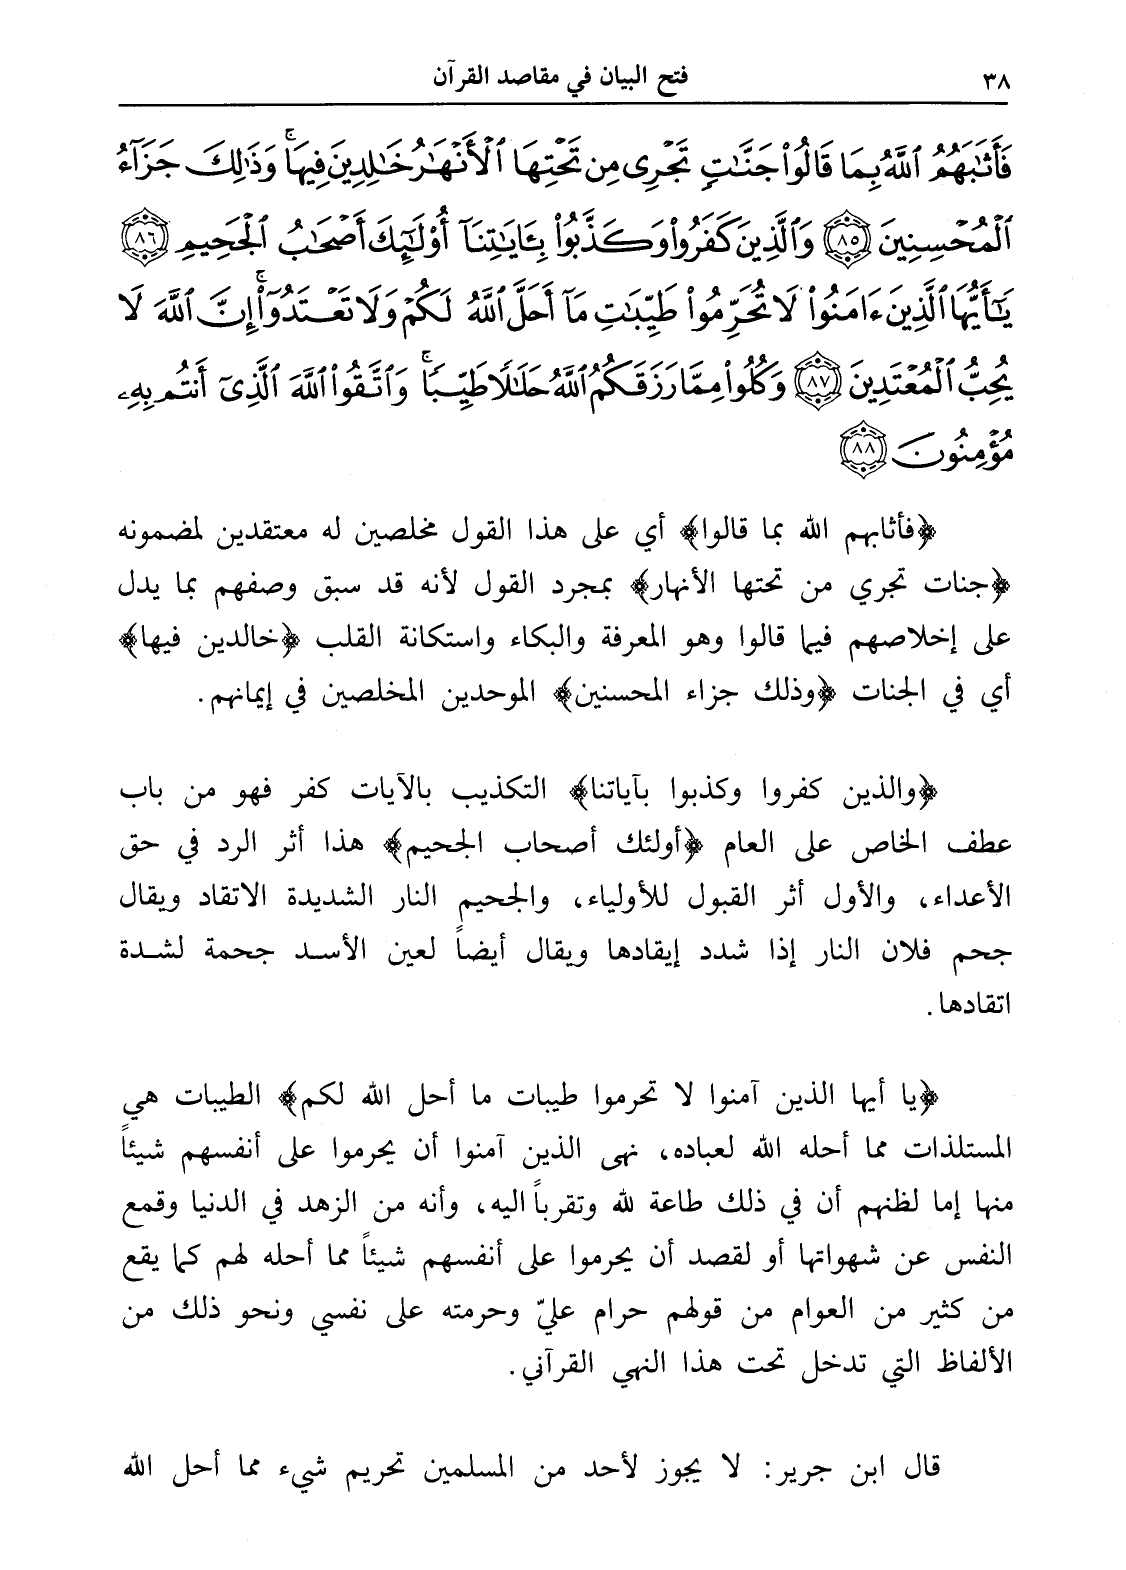 ٣٨ فتح البيان في مقاصد القرآن
فَأَثَٰبَهُمُ ٱللَّهُ بِمَا قَالُوا۟ جَنَّٰتٍ تَجْرِى مِن تَحْتِهَا ٱلْأَنْهَٰرُ خَٰلِدِينَ فِيهَا ۚ وَذَٰلِكَ جَزَآءُ
ٱلْمُحْسِنِينَ ﴿٨٥﴾ وَٱلَّذِينَ كَفَرُوا۟ وَكَذَّبُوا۟ بِـَٔايَٰتِنَآ أُو۟لَٰٓئِكَ أَصْحَٰبُ ٱلْجَحِيمِ ﴿٨٦﴾
يَٰٓأَيُّهَا ٱلَّذِينَ ءَامَنُوا۟ لَا تُحَرِّمُوا۟ طَيِّبَٰتِ مَآ أَحَلَّ ٱللَّهُ لَكُمْ وَلَا تَعْتَدُوٓا۟ ۚ إِنَّ ٱللَّهَ لَا
يُحِبُّ ٱلْمُعْتَدِينَ ﴿٨٧﴾ وَكُلُوا۟ مِمَّا رَزَقَكُمُ ٱللَّهُ حَلَٰلًا طَيِّبًا ۚ وَٱتَّقُوا۟ ٱللَّهَ ٱلَّذِىٓ أَنتُم بِهِۦ
مُؤْمِنُونَ ﴿٨٨﴾
﴿فأثابهم الله بما قالوا﴾ أي على هذا القول مخلصين له معتقدين لمضمونه
﴿جنات تجري من تحتها الأنهار﴾ بمجرد القول لأنه قد سبق وصفهم بما يدل
على إخلاصهم فيما قالوا وهو المعرفة والبكاء واستكانة القلب ﴿خالدين فيها﴾
أي في الجنات ﴿وذلك جزاء المحسنين﴾ الموحدين المخلصين في إيمانهم.
﴿والذين كفروا وكذبوا بآياتنا﴾ التكذيب بالآيات كفر فهو من باب
عطف الخاص على العام ﴿أولئك أصحاب الجحيم﴾ هذا أثر الرد في حق
الأعداء، والأول أثر القبول للأولياء، والجحيم النار الشديدة الاتقاد ويقال
جحم فلان النار إذا شدد إيقادها ويقال أيضاً لعين الأسد جحمة لشدة
اتقادها.
﴿يا أيها الذين آمنوا لا تحرموا طيبات ما أحل الله لكم﴾ الطيبات هي
المستلذات مما أحله الله لعباده، نهى الذين آمنوا أن يحرموا على أنفسهم شيئاً
منها إما لظنهم أن في ذلك طاعة لله وتقرباً اليه، وأنه من الزهد في الدنيا وقمع
النفس عن شهواتها أو لقصد أن يحرموا على أنفسهم شيئاً مما أحله لهم كما يقع
من كثير من العوام من قولهم حرام عليّ وحرمته على نفسي ونحو ذلك من
الألفاظ التي تدخل تحت هذا النهي القرآني.
قال ابن جرير: لا يجوز لأحد من المسلمين تحريم شيء مما أحل الله